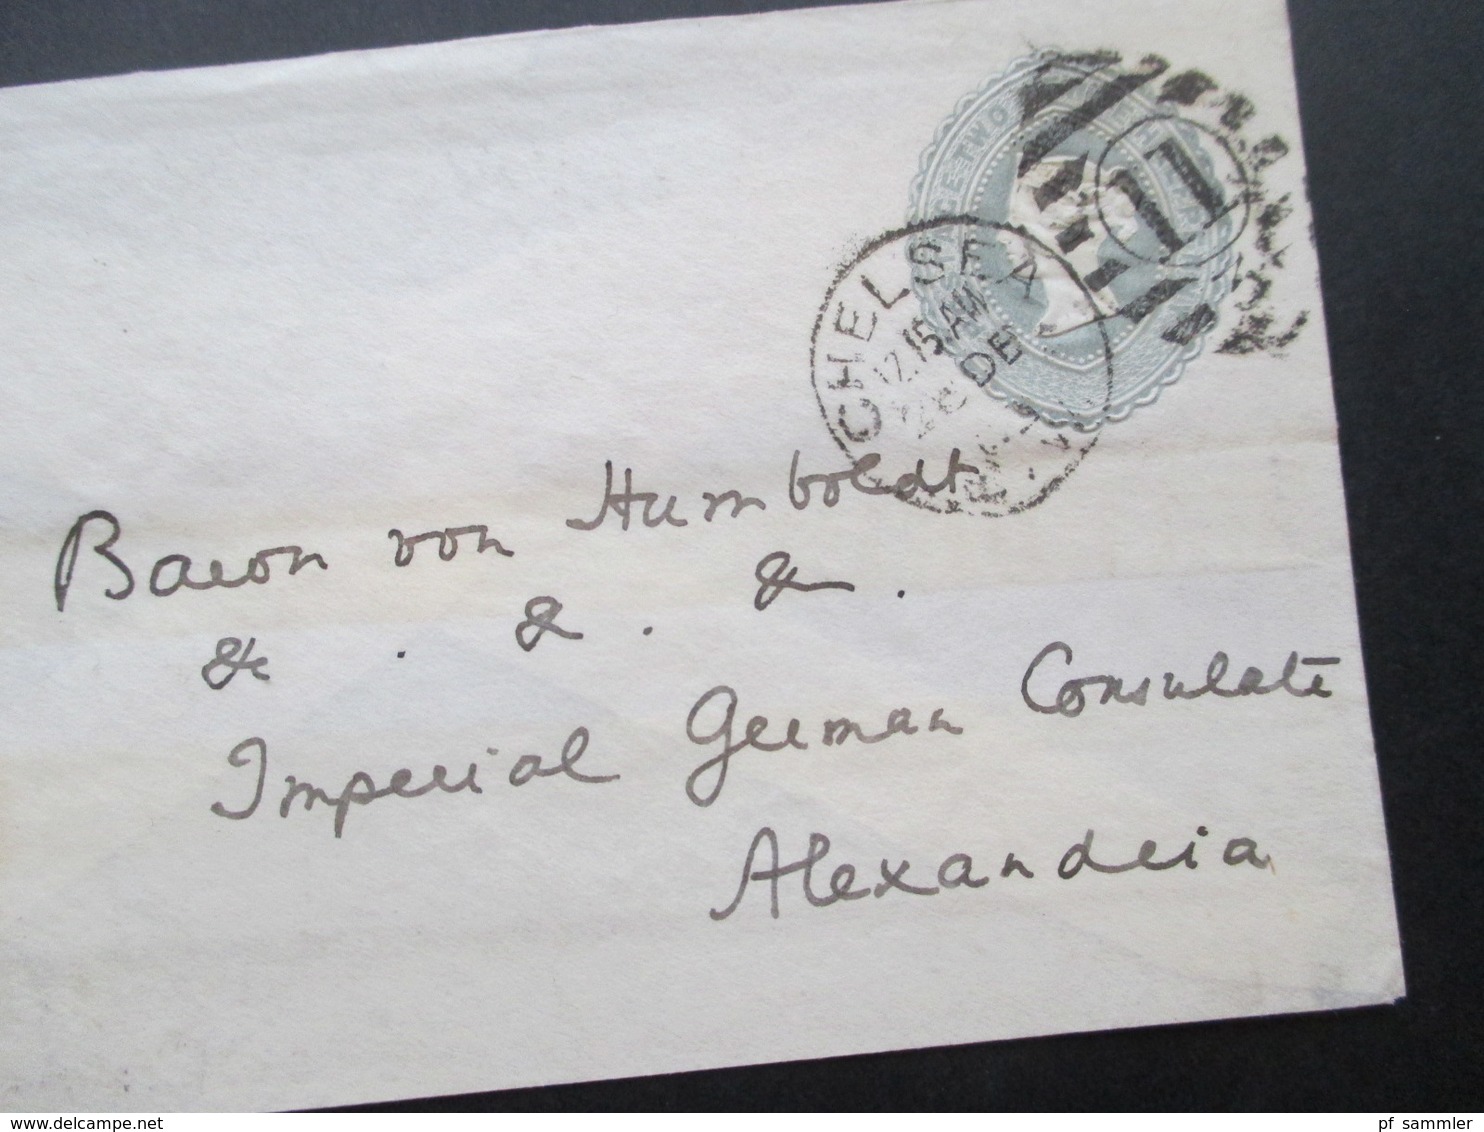 CHELSEA
12.15 AM
DE
11
Baron von Humboldt
& . & . & .
Imperial German Consulate
Alexandria
www.delcampe.net
pf_sammler